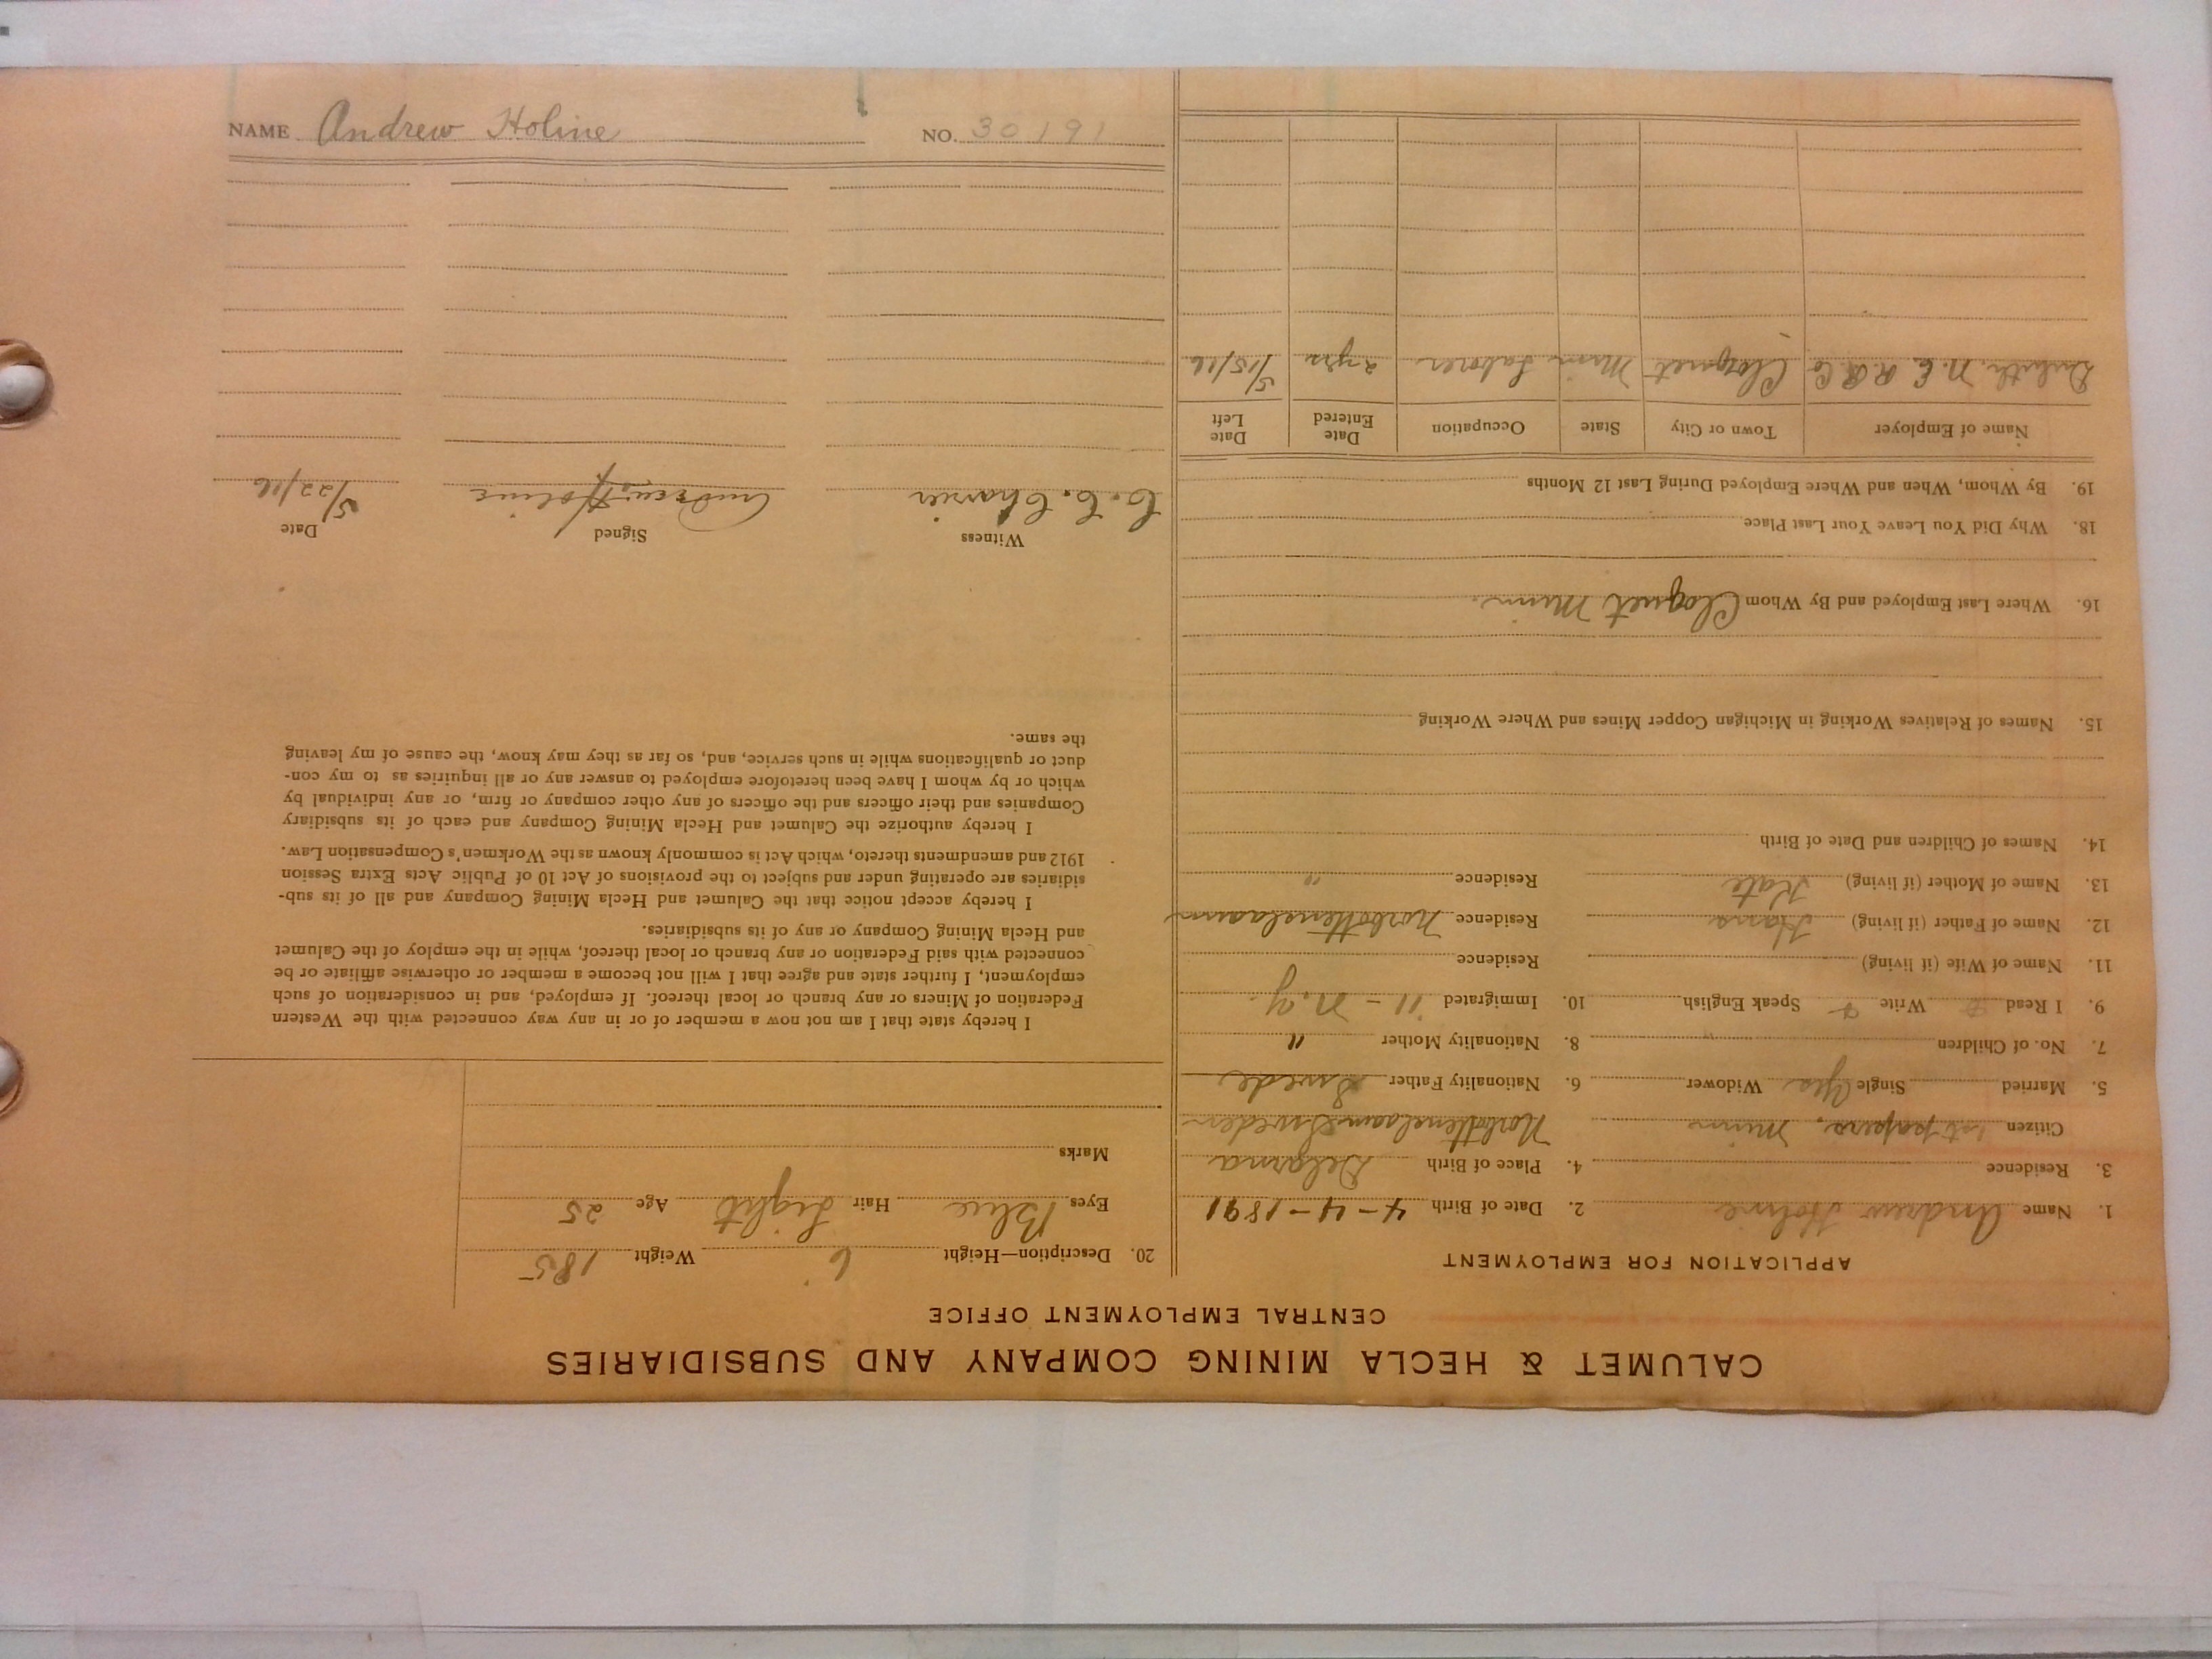 CALUMET & HECLA MINING COMPANY AND SUBSIDIARIES
CENTRAL EMPLOYMENT OFFICE
APPLICATION FOR EMPLOYMENT
1. Name Andrew Holine 2. Date of Birth 4-4-1891
3. Residence 4. Place of Birth
Citizen 1st papers, Minn Sweden
5. Married Single Yes Widower 6. Nationality Father Swede
7. No. of Children 8. Nationality Mother "
9. I Read Write Speak English 10. Immigrated '11 - N.Y.
11. Name of Wife (if living) Residence
12. Name of Father (if living) Hans Residence
13. Name of Mother (if living) Kate Residence "
14. Names of Children and Date of Birth
15. Names of Relatives Working in Michigan Copper Mines and Where Working
16. Where Last Employed and By Whom Cloquet Minn.
18. Why Did You Leave Your Last Place
19. By Whom, When and Where Employed During Last 12 Months
Name of Employer Town or City State Occupation Date Entered Date Left
Duluth. N. E. R R Co Cloquet Minn Laborer 2 yrs 5/15/16
20. Description—Height 6 Weight 185
Eyes Blue Hair Light Age 25
Marks
I hereby state that I am not now a member of or in any way connected with the Western
Federation of Miners or any branch or local thereof. If employed, and in consideration of such
employment, I further state and agree that I will not become a member or otherwise affiliate or be
connected with said Federation or any branch or local thereof, while in the employ of the Calumet
and Hecla Mining Company or any of its subsidiaries.
I hereby accept notice that the Calumet and Hecla Mining Company and all of its sub-
sidiaries are operating under and subject to the provisions of Act 10 of Public Acts Extra Session
1912 and amendments thereto, which Act is commonly known as the Workmen's Compensation Law.
I hereby authorize the Calumet and Hecla Mining Company and each of its subsidiary
Companies and their officers and the officers of any other company or firm, or any individual by
which or by whom I have been heretofore employed to answer any or all inquiries as to my con-
duct or qualifications while in such service, and, so far as they may know, the cause of my leaving
the same.
Witness Signed Date
Andrew Holine 5/22/16
NAME Andrew Holine NO. 30191